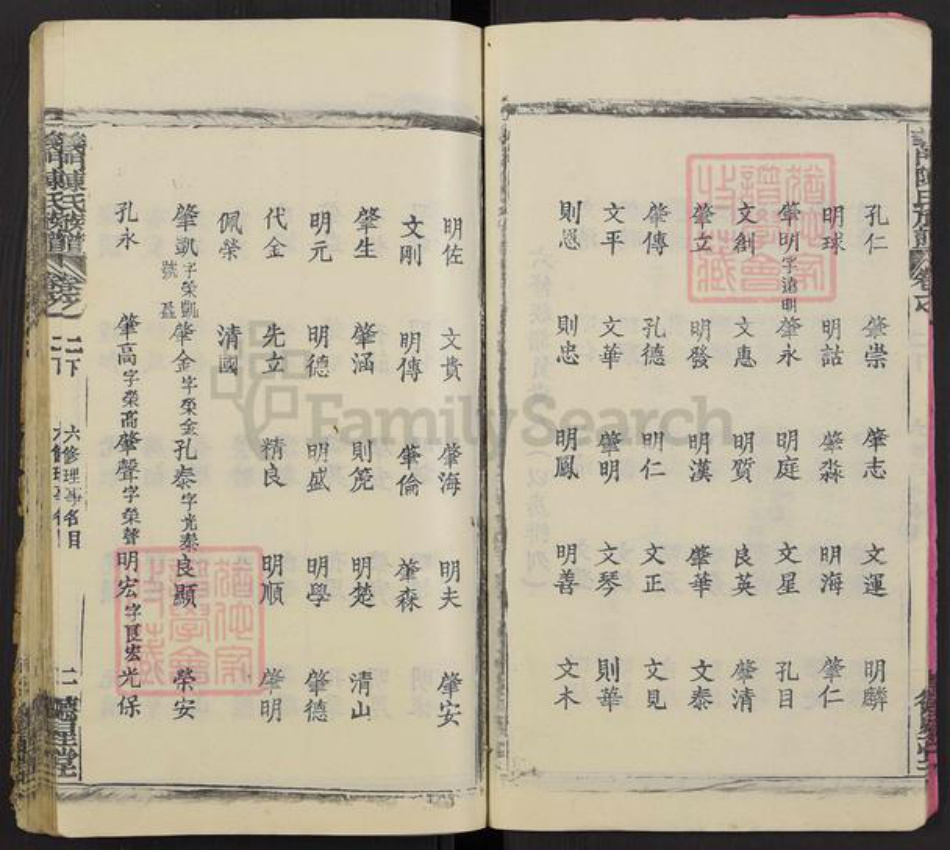 孔仁 肇崇 肇志 文運 明麟
明球 明詰 肇淼 明海 肇仁
肇明字遠明 肇永 明庭 文星 孔目
文創 文惠 明質 良英 肇清
肇立 明發 明漢 肇華 文泰
肇傳 孔德 明仁 文正 文見
文平 文華 肇明 文琴 則華
則恩 則忠 明鳳 明善 文木
明佐 文貴 肇海 明夫 肇安
文剛 明傳 肇倫 肇森
肇生 肇涵 則篪 明楚 清山
明元 明德 明盛 明學 肇德
代金 先立 精良 明順 肇明
佩榮 清國
肇凱字榮凱號 肇金字榮金 孔泰字光泰 良顯 榮安
孔永 肇高字榮高 肇聲字榮聲 明宏字良宏 光保
義門陳氏族譜 卷之二下 六修理事名目 二
FamilySearch